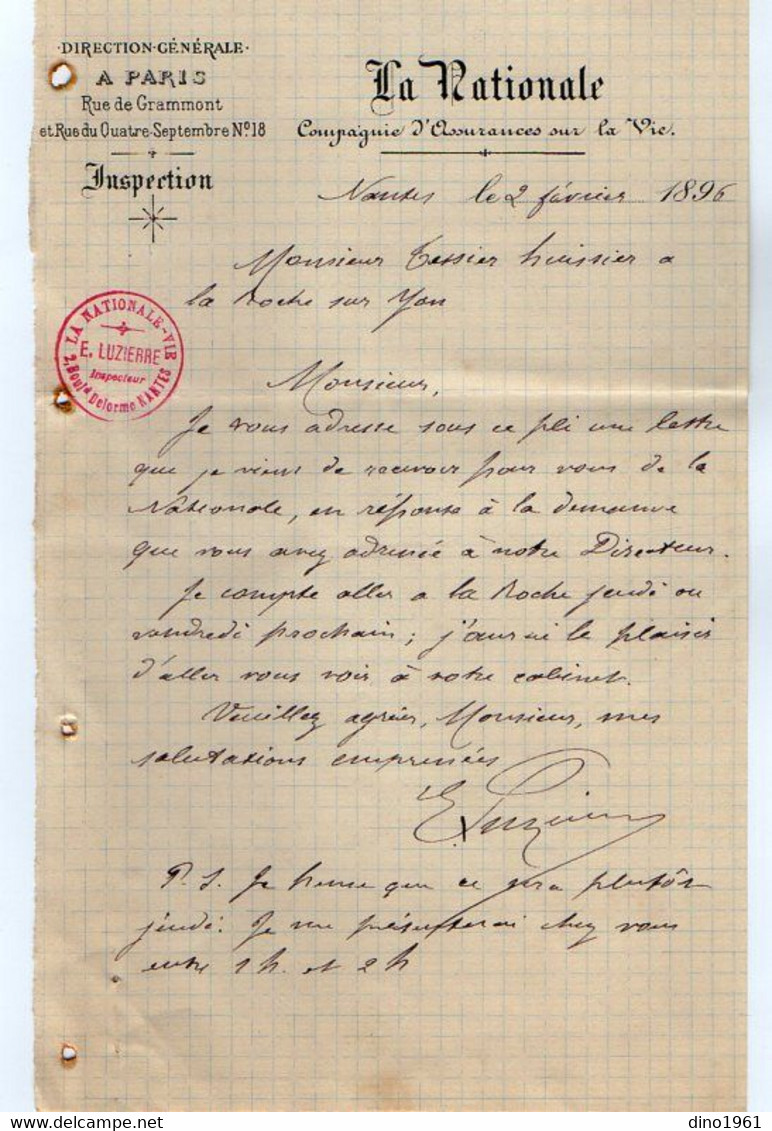 ·DIRECTION·GÉNÉRALE·
A PARIS
Rue de Grammont
et Rue du Quatre-Septembre Nº 18
Inspection
La Nationale
Compagnie d'Assurances sur la Vie.
Nantes le 2 février 1896
Monsieur Tessier huissier a
la Roche sur Yon
LA NATIONALE-VIE
E. LUZIERRE
Inspecteur
2, Boulᵈ Delorme NANTES
Monsieur,
Je vous adresse sous ce pli une lettre
que je viens de recevoir pour vous de la
Nationale, en réponse à la demande
que vous avez adressée à notre Directeur.
Je compte aller a la Roche jeudi ou
vendredi prochain; j'aurai le plaisir
d'aller vous voir à votre cabinet.
Veuillez agréer, Monsieur, mes
salutations empressées
E. Luzierre
P. S. Je pense que ce sera plutôt
jeudi. Je me présenterai chez vous
entre 1 h. et 2 h
dino1961